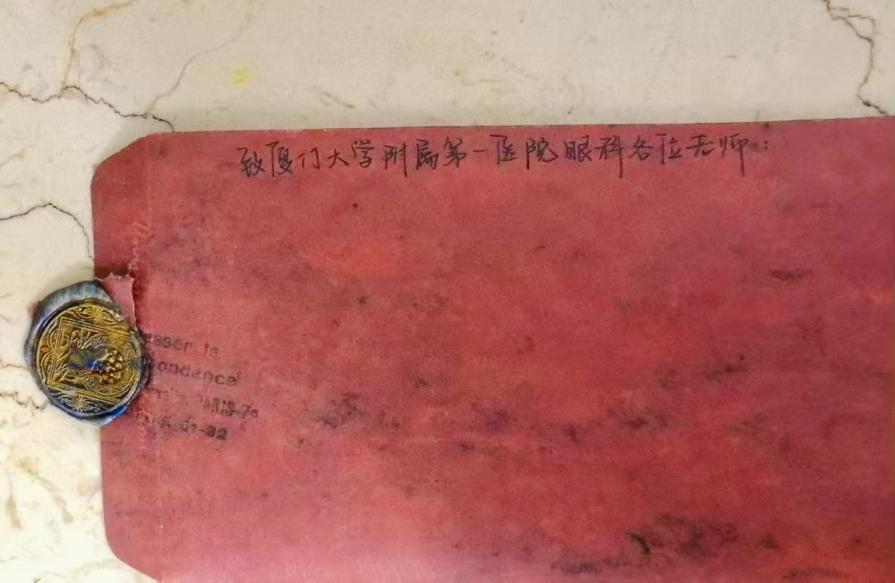 致厦门大学附属第一医院眼科各位老师：
esser la
ondance
PARIS-7e